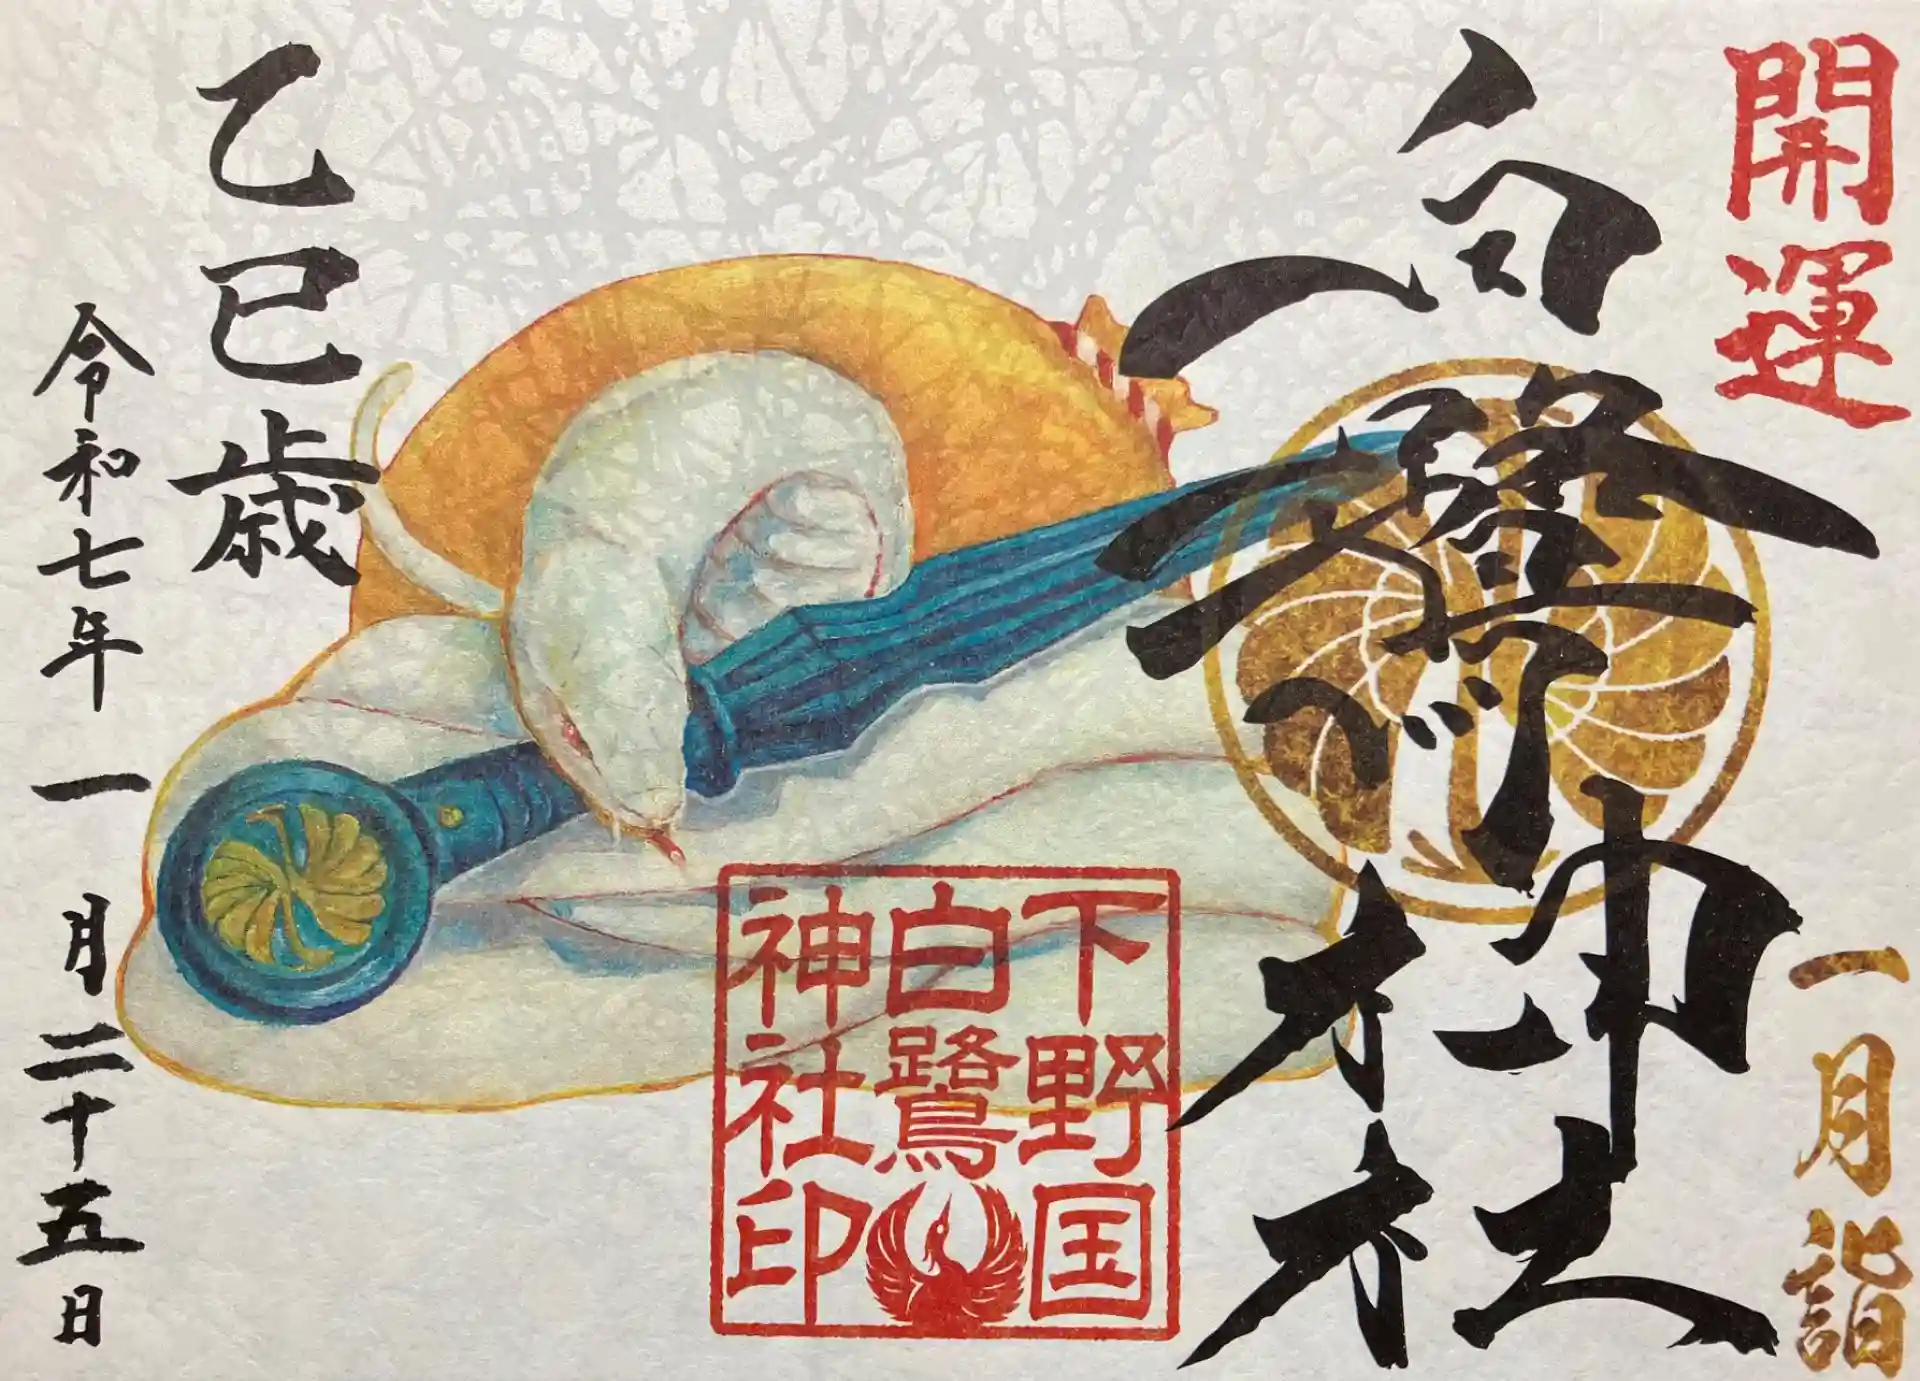 開運
一月詣
白鷺神社
下野国
白鷺
神社印
乙巳歳
令和七年一月二十五日